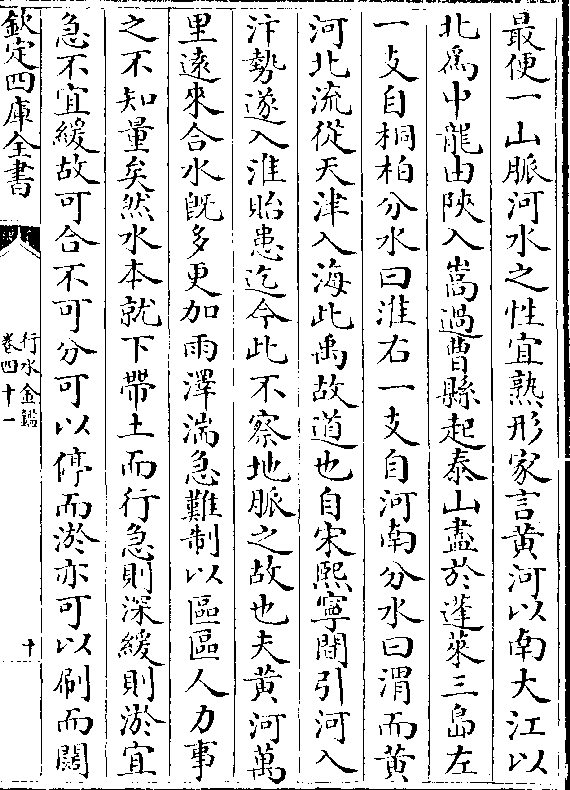 最便一山脈河水之性宜熟形家言黄河以南大江以
北為中龍由陜入嵩過曹縣起泰山盡於蓬萊三島左
一支自桐柏分水曰淮右一支自河南分水曰渭而黄
河北流從天津入海此禹故道也自宋熙寧間引河入
汴勢遂入淮貽患迄今此不察地脈之故也夫黄河萬
里遠來合水旣多更加雨澤湍急難制以區區人力事
之不知量矣然水本就下帶土而行急則深緩則淤宜
急不宜緩故可合不可分可以停而淤亦可以刷而闊
欽定四庫全書
行水金鑑
卷四十一
十